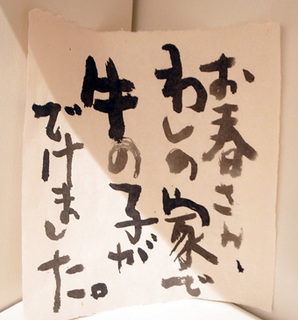 お春さん、
わしの家で
牛の子が
でけました。